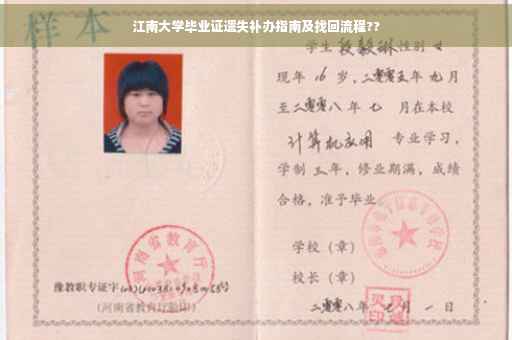 江南大学毕业证遗失补办指南及找回流程??
样本
河南省教育厅
豫教职专证字
(河南省教育厅验印)
学生 段毅琳 性别 女
现年 16 岁,二零零五年 九 月
至二零零八 年 七 月在本校
计算机应用 专业学习,
学制 三 年,修业期满,成绩
合格,准予毕业
学校(章)
校长(章)
二零零八年 七 月 一 日